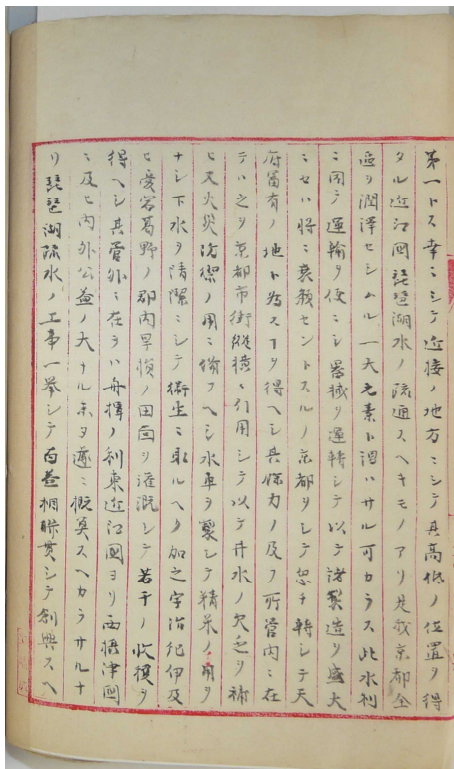 第一トス幸ニシテ近接ノ地方ニシテ其高低ノ位置ヲ得
タル近江國琵琶湖水ノ疏通スヘキモノアリ是我京都全
區ヲ潤澤セシムル一大元素ト謂ハサル可カラス此水利
ニ因テ運輸ヲ便ニシ器械ヲ運轉シテ以テ諸製造ヲ盛大
ニセハ將ニ衰頽セントスルノ京都ヲシテ忽チ轉シテ天
府富有ノ地ト為スヿヲ得ヘシ其餘力ノ及フ所管内ニ在
テハ之ヲ京都市街縱横ニ引用シテ以テ井水ノ欠乏ヲ補
ヒ又火災防禦ノ用ニ備フヘシ水車ヲ製シテ精米ノ用ヲ
ナシ下水ヲ清潔ニシテ衛生ニ取ルヘク加之宇治紀伊及
ヒ愛宕葛野ノ郡内旱損ノ田面ヲ灌漑シテ若干ノ收穫ヲ
得ヘシ其管外ニ在ラハ舟揖ノ利東近江國ヨリ西攝津國
ニ及ヒ内外公益ノ大ナル未タ遽ニ概算スヘカラサルナ
リ琵琶湖疏水ノ工事一挙シテ百益相聯貫シテ創興スヘ